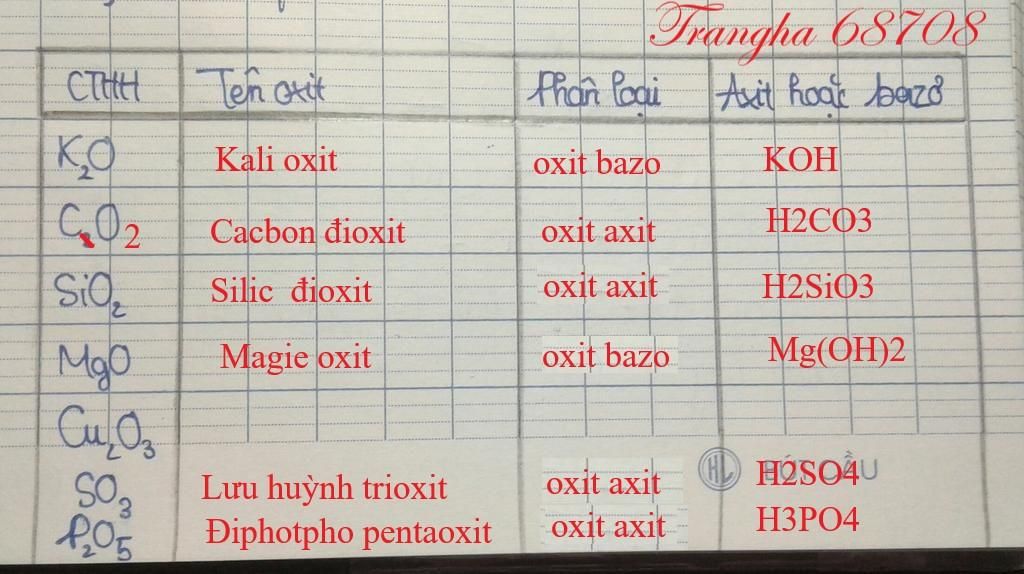 Trangha 68708
CTHH Tên oxit Phân loại Axit hoặc bazơ
K2O Kali oxit oxit bazo KOH
CO2 Cacbon đioxit oxit axit H2CO3
SiO2 Silic đioxit oxit axit H2SiO3
MgO Magie oxit oxit bazo Mg(OH)2
Cu2O3
SO3 Lưu huỳnh trioxit oxit axit H2SO4
P2O5 Điphotpho pentaoxit oxit axit H3PO4
HL